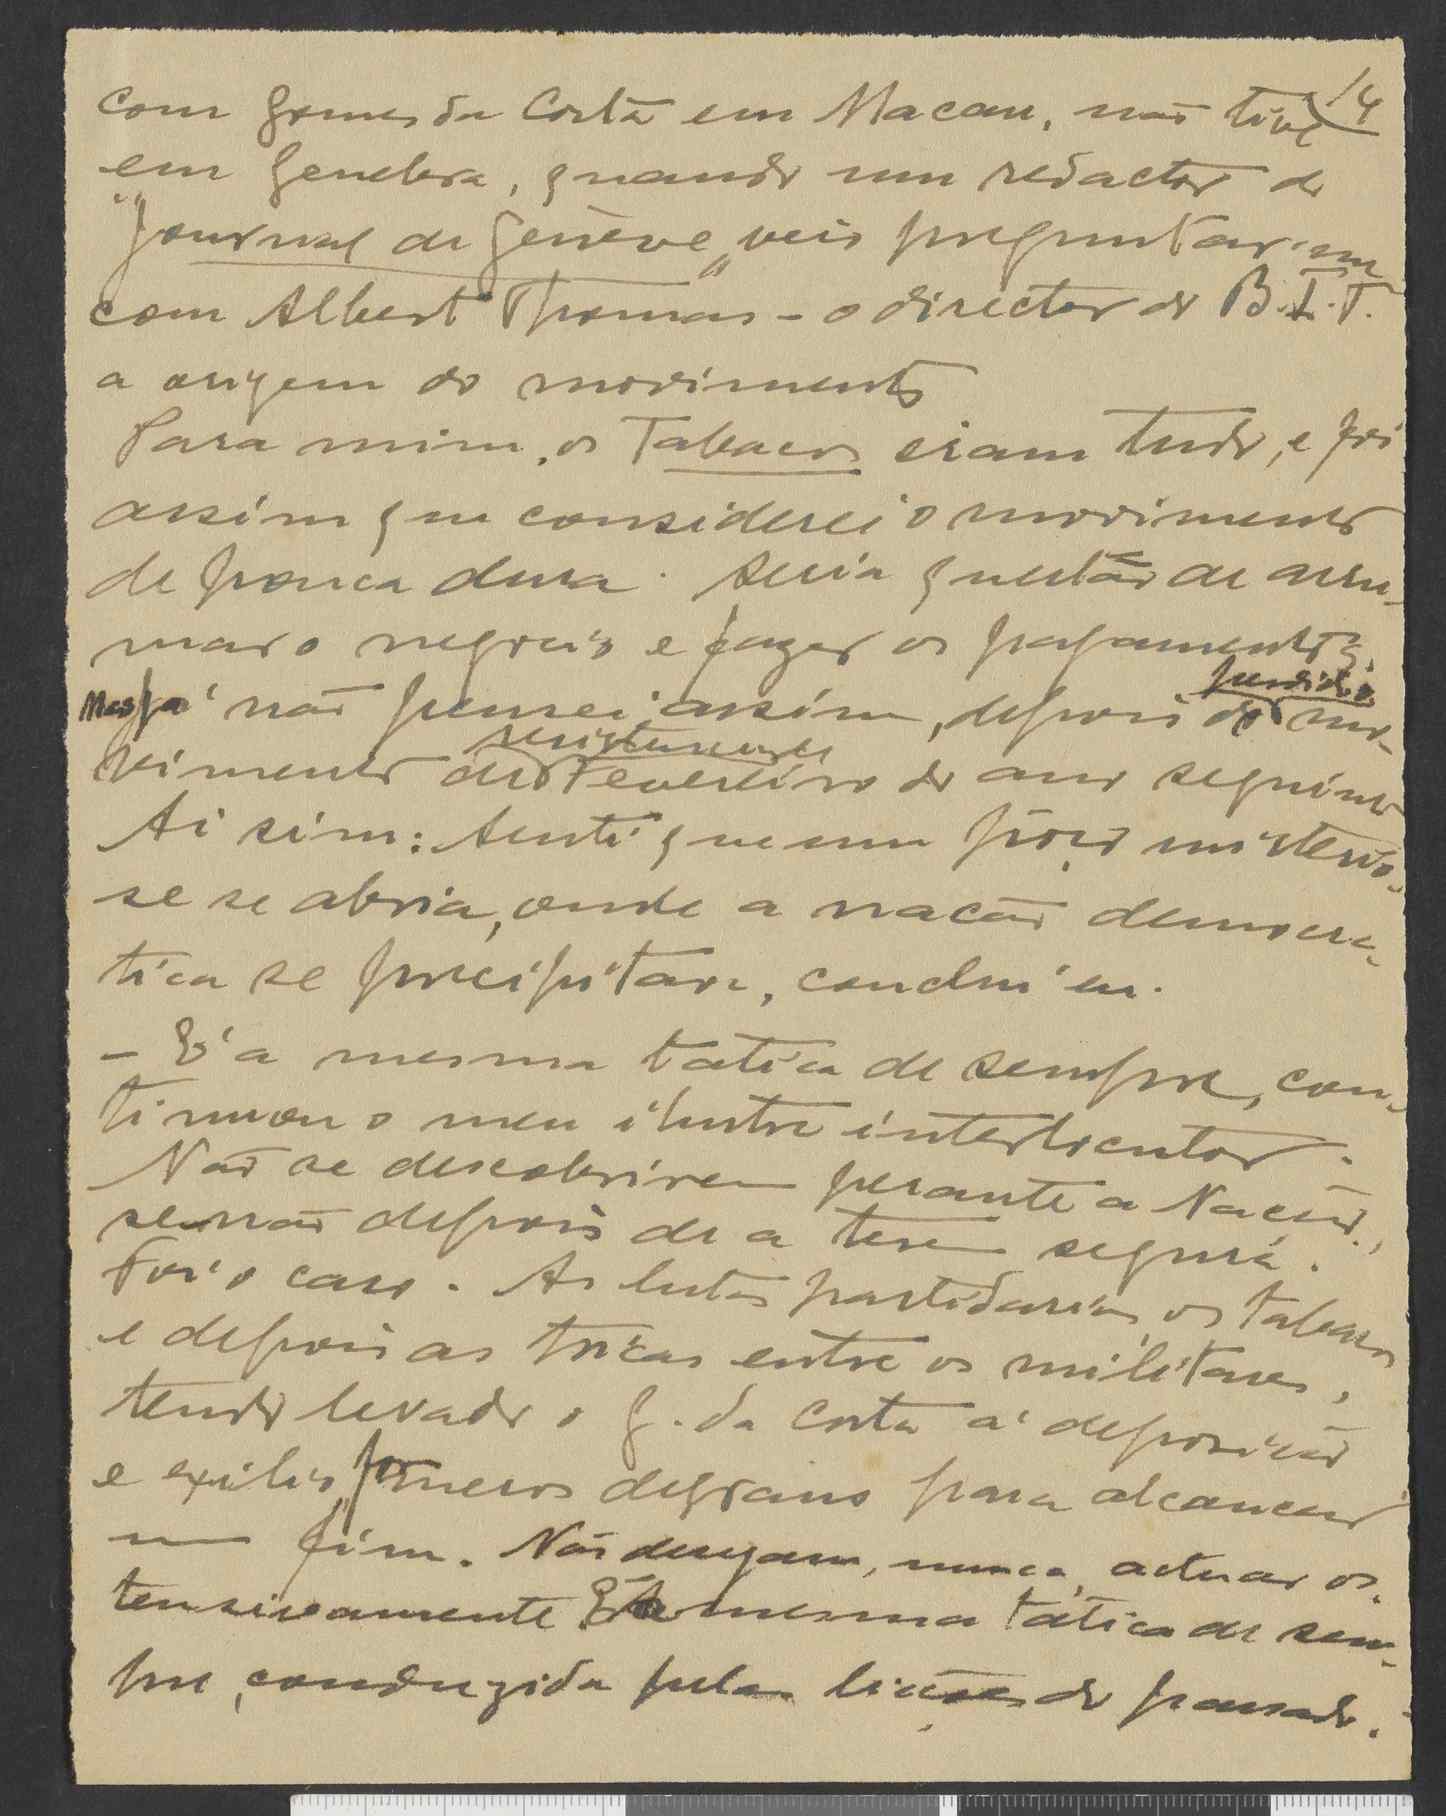 14
com Gomes da Costa em Macau, não tive
em Genebra, quando um redactor do
"Journal de Genève" veio preguntar-me
com Albert Thomas - o director do B.I.T.
a origem do movimento
Para mim, os Tabacos eram tudo, e foi
assim que considerei o movimento
de pouca dura. Seria questão de arru-
mar o negocio e fazer os pagamentos.
Mas já não pensei assim, depois do perdido mo-
vimento de Fevereiro do ano seguinte
Ai sim: Senti que um poço misterio-
se se abria, onde a nação democra-
tica se precipitara, conclui eu.
- É a mesma tatica de sempre, con-
tinuou o meu ilustre interlocutor.
Não se descobrirem perante a Nação,
senão depois de a terem segura.
Foi o caso. As lutas partidarias, os tabacos
e depois as tricas entre os militares,
tendo levado o G. da Costa á deposição
e exilio, foram meros degraus para alcançar
um fim. Não desejam, nunca, actuar os-
tensivamente É a mesma tática de sem-
pre, conduzida pelas lições do passado.